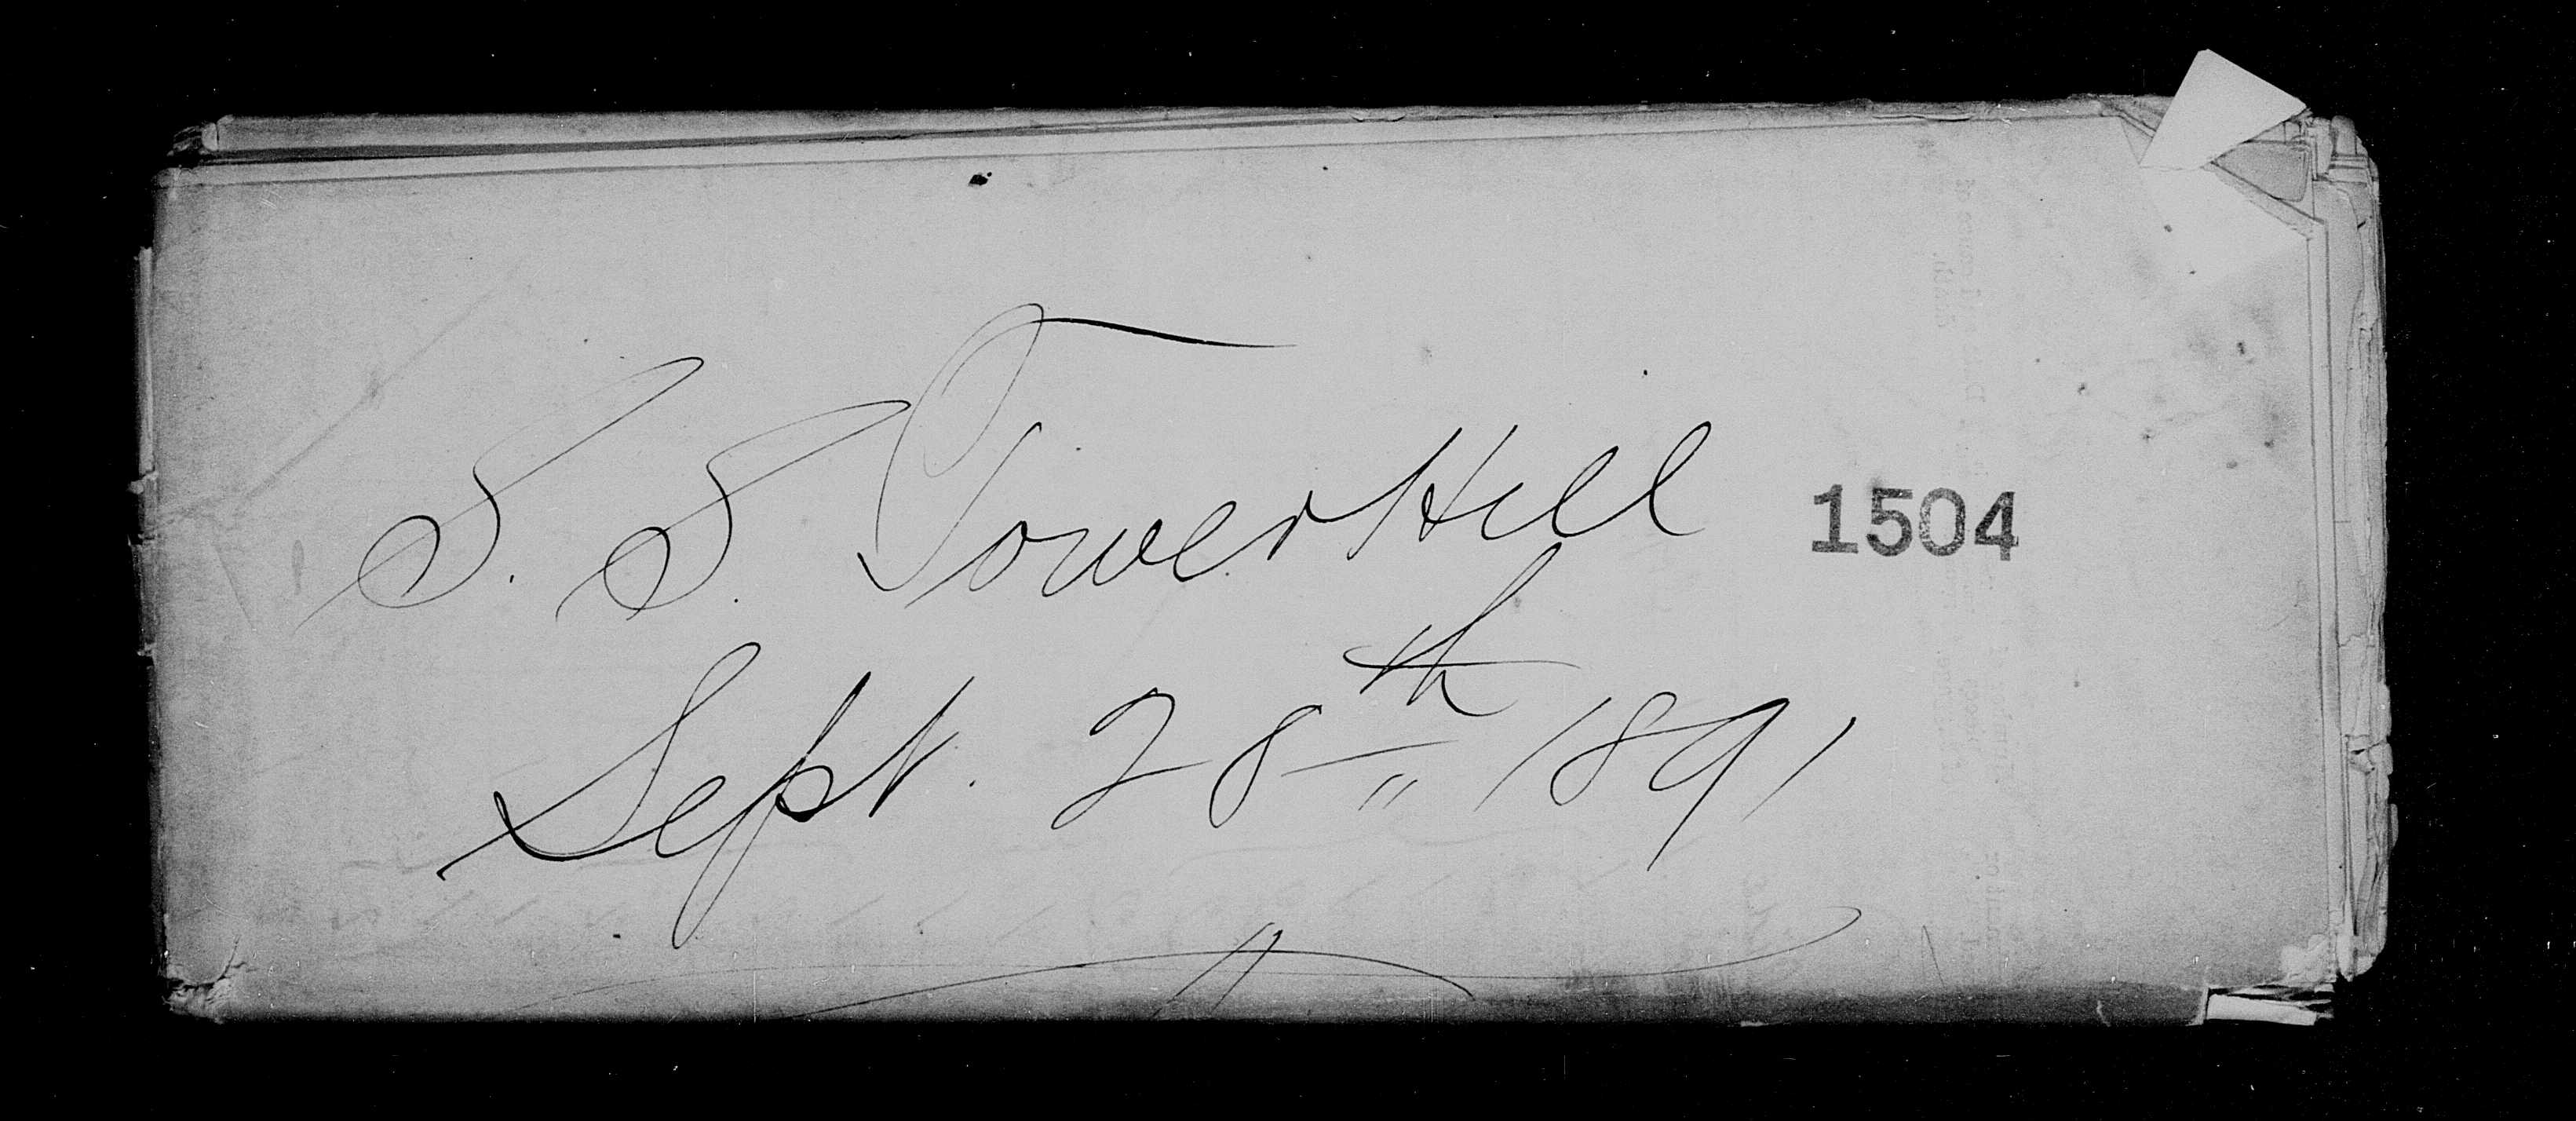 S. S. Tower Hill 1504
Sept. 28th 1891